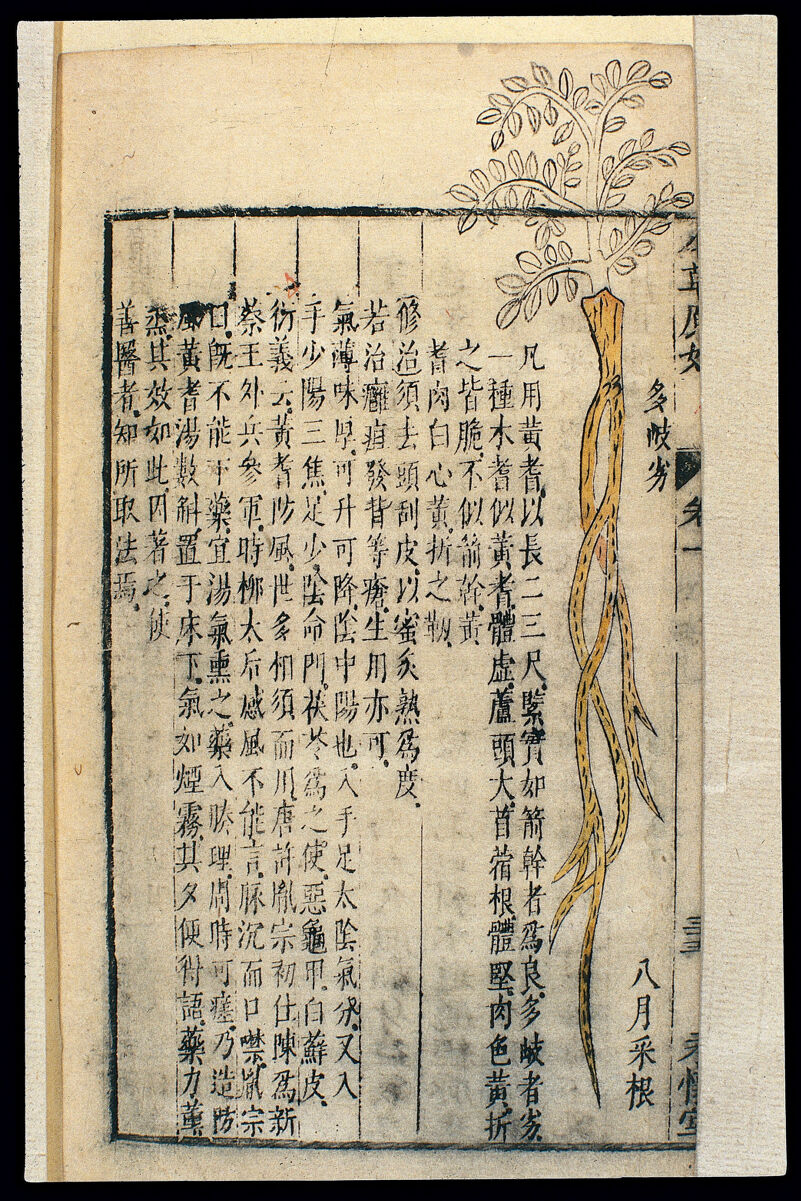 本草原始
卷一
多岐劣
八月采根
凡用黃耆以長二三尺緊實如箭幹者爲良多岐者劣
一種木耆似黃耆體虛蘆頭大苜蓿根體堅肉色黃折
之皆脆不似箭幹黃
耆肉白心黃折之韌
修治須去頭刮皮以蜜炙熟爲度
若治癰疽發背等瘡生用亦可
氣薄味厚可升可降陰中陽也入手足太陰氣分又入
手少陽三焦足少陰命門茯苓爲之使惡龜甲白蘚皮
衍義云黃耆防風世多相須而用唐許胤宗初仕陳爲新
蔡王外兵參軍時柳太后感風不能言脉沉而口噤胤宗
曰既不能下藥宜湯氣熏之藥入腠理周時可瘥乃造防
風黃耆湯數斛置于床下氣如煙霧其夕便得語藥力薰
蒸其效如此因著之使
善醫者知所取法焉